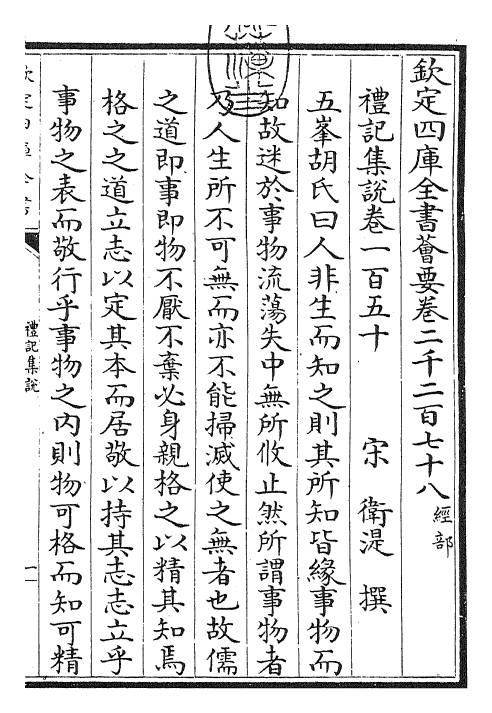 欽定四庫全書薈要卷二千二百七十八 經部
禮記集說卷一百五十 宋 衛湜 撰
五峯胡氏曰人非生而知之則其所知皆緣事物而
知故迷於事物流蕩失中無所攸止然所謂事物者
乃人生所不可無而亦不能掃滅使之無者也故儒
之道即事即物不厭不棄必身親格之以精其知焉
格之之道立志以定其本而居敬以持其志志立乎
事物之表而敬行乎事物之内則物可格而知可精
禮記集說
一